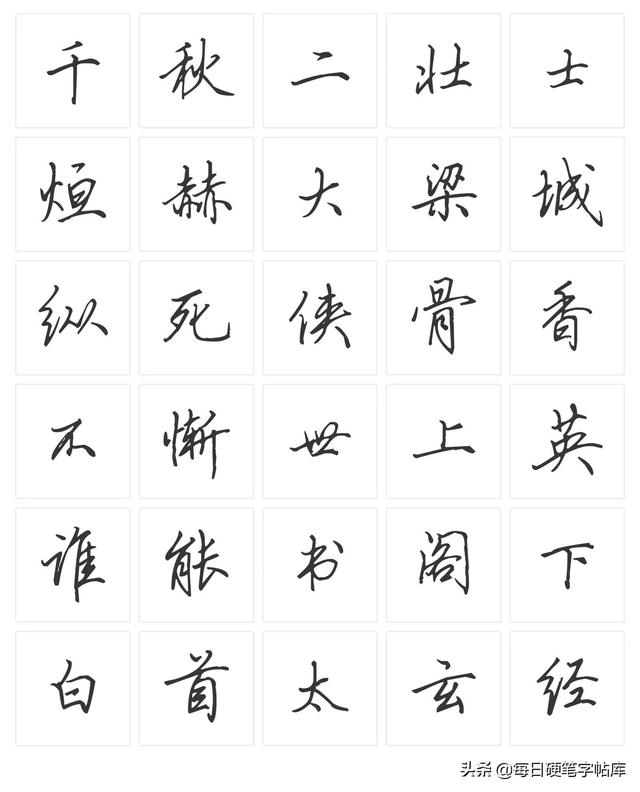 千秋二壮士
烜赫大梁城
纵死侠骨香
不惭世上英
谁能书阁下
白首太玄经
头条 @每日硬笔字帖库